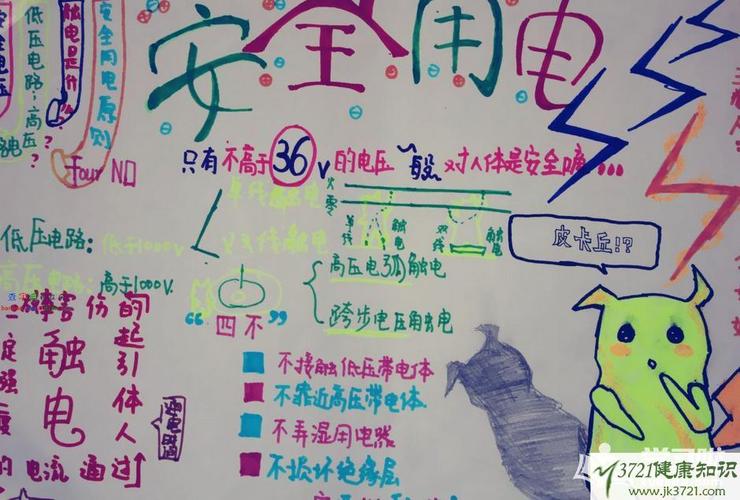 安全用电
安全电压
低压电路；高压
触电是什么？
安全用电原则
Four NO
只有不高于36v的电压一般对人体是安全哒...
单线触电
双线触电
火
零
单线
触电
双线
触电
低压电路：低于1000v
高压电路：高于1000V.
高压电弧触电
跨步电压触电
“四不”
不接触低压带电体
不靠近高压带电体
不弄湿用电器
不损坏绝缘层
皮卡丘!?
触电
一定强度的电流通过人体引起的伤害
3721健康知识
www.jk3721.com